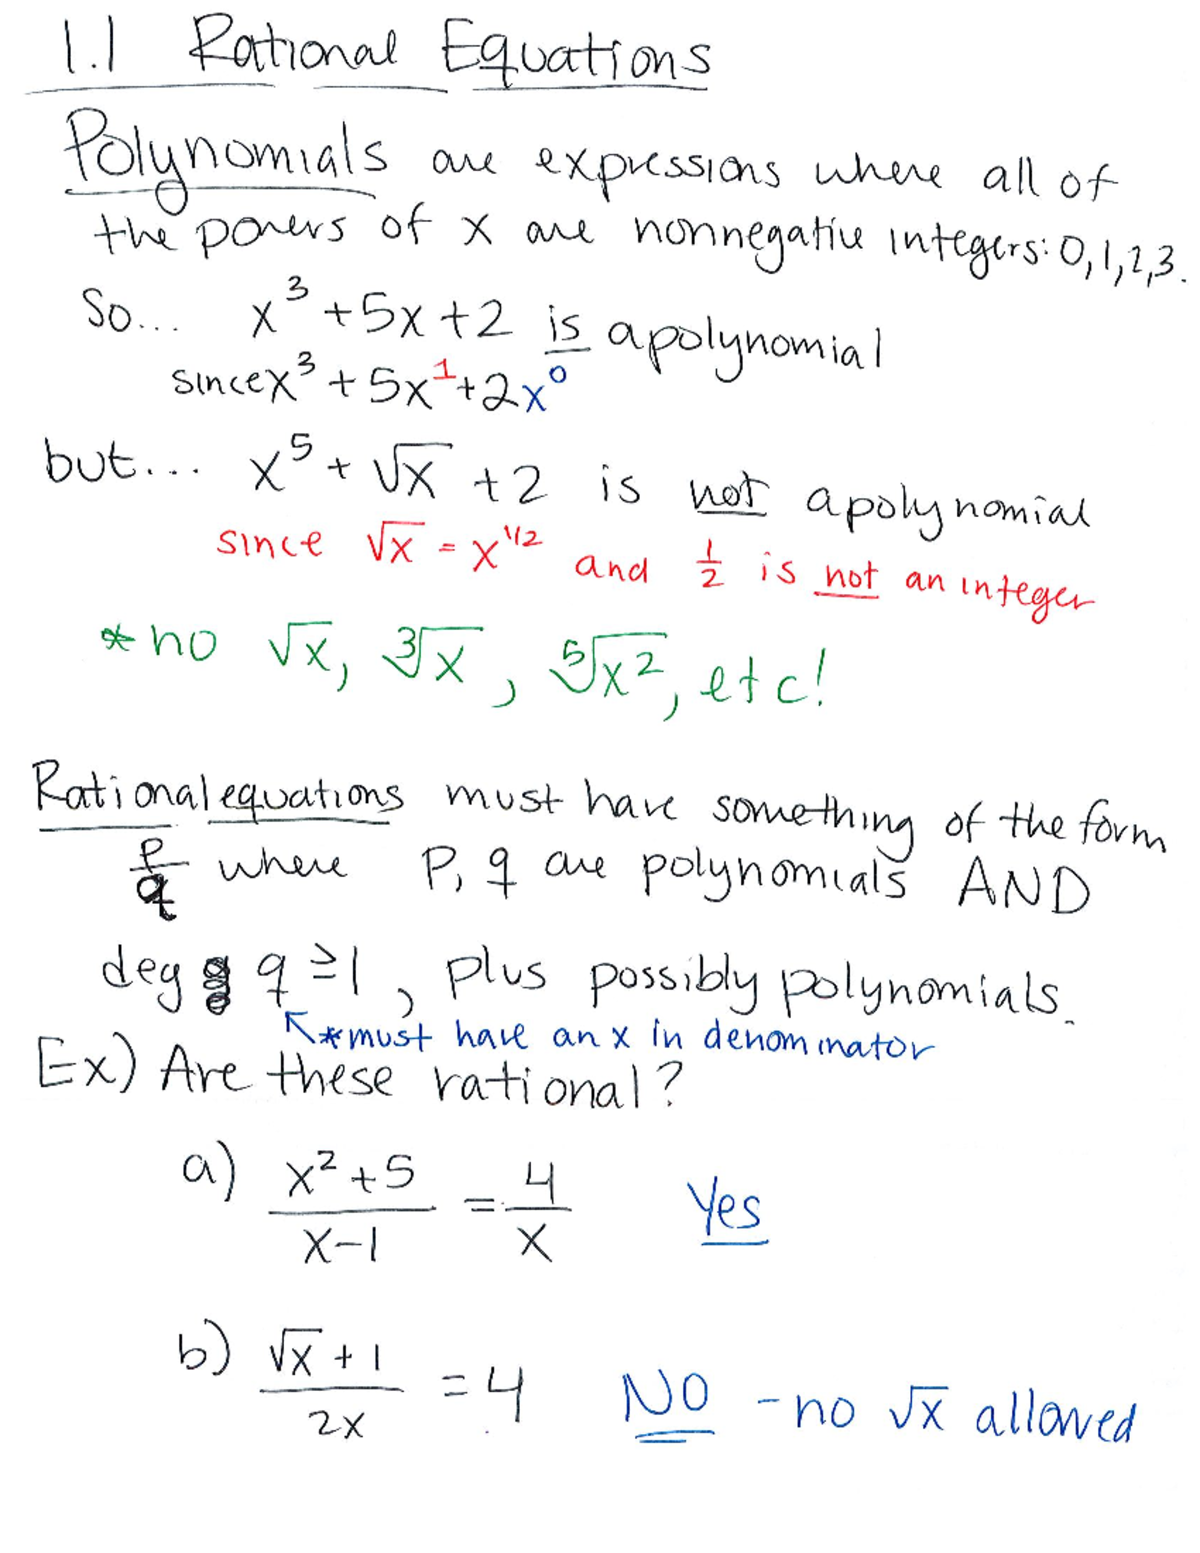 1.1 Rational Equations
Polynomials are expressions where all of
the powers of x are nonnegative integers: 0,1,2,3.
So... x³ + 5x + 2 is a polynomial
since x³ + 5x¹ + 2x⁰
but... x⁵ + √x + 2 is not a polynomial
since √x = x^1/2 and 1/2 is not an integer
* no √x, ³√x, ⁵√x², etc!
Rational equations must have something of the form
p/q where p, q are polynomials AND
deg q ≥ 1, plus possibly polynomials.
↖ * must have an x in denominator
Ex) Are these rational?
a) (x² + 5)/(x - 1) = 4/x Yes
b) (√x + 1)/(2x) = 4 NO - no √x allowed